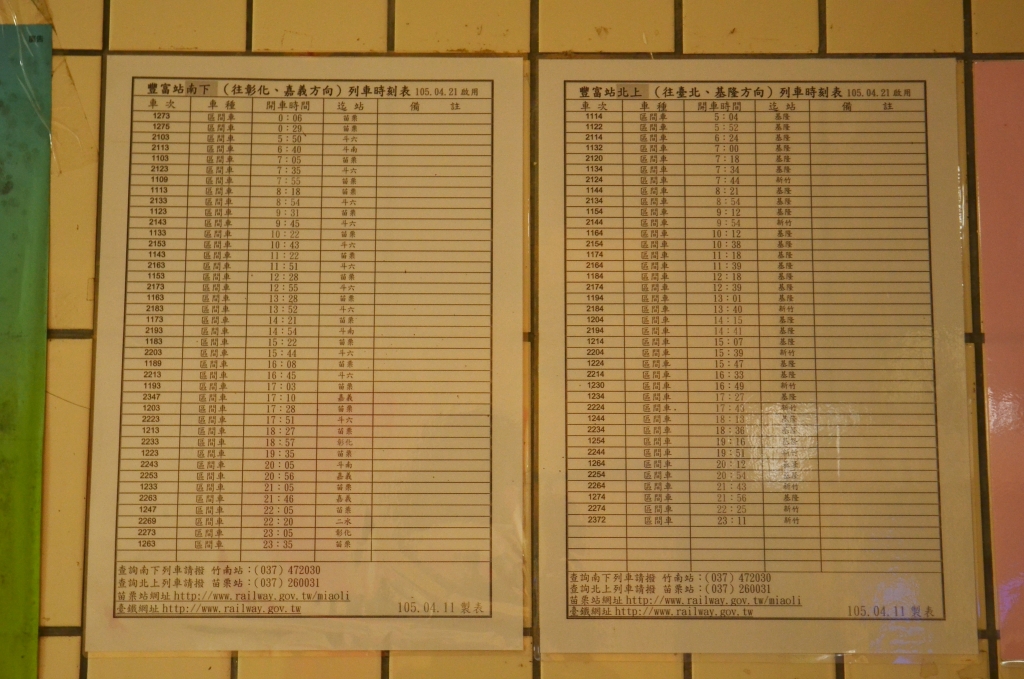 豐富站南下 (往彰化、嘉義方向) 列車時刻表 105.04.21 啟用
車次 車種 開車時間 迄站 備註
1273 區間車 0:06 苗栗
1275 區間車 0:29 苗栗
2103 區間車 5:50 斗六
2113 區間車 6:40 斗南
1103 區間車 7:05 苗栗
2123 區間車 7:35 斗六
1109 區間車 7:55 苗栗
1113 區間車 8:18 苗栗
2133 區間車 8:54 斗六
1123 區間車 9:31 苗栗
2143 區間車 9:45 斗六
1133 區間車 10:22 苗栗
2153 區間車 10:43 斗六
1143 區間車 11:22 苗栗
2163 區間車 11:51 斗六
1153 區間車 12:28 苗栗
2173 區間車 12:55 斗六
1163 區間車 13:28 苗栗
2183 區間車 13:52 斗六
1173 區間車 14:21 苗栗
2193 區間車 14:54 斗南
1183 區間車 15:22 苗栗
2203 區間車 15:44 斗六
1189 區間車 16:08 苗栗
2213 區間車 16:45 斗六
1193 區間車 17:03 苗栗
2347 區間車 17:10 嘉義
1203 區間車 17:28 苗栗
2223 區間車 17:51 斗六
1213 區間車 18:27 苗栗
2233 區間車 18:57 彰化
1223 區間車 19:35 苗栗
2243 區間車 20:05 斗南
2253 區間車 20:56 嘉義
1233 區間車 21:05 苗栗
2263 區間車 21:46 嘉義
1247 區間車 22:05 苗栗
2269 區間車 22:20 二水
2273 區間車 23:05 彰化
1263 區間車 23:35 苗栗
查詢南下列車請撥 竹南站:(037) 472030
查詢北上列車請撥 苗栗站:(037) 260031
苗栗站網址 http://www.railway.gov.tw/miaoli
臺鐵網址 http://www.railway.gov.tw 105.04.11 製表
豐富站北上 (往臺北、基隆方向) 列車時刻表 105.04.21 啟用
車次 車種 開車時間 迄站 備註
1114 區間車 5:04 基隆
1122 區間車 5:52 基隆
2114 區間車 6:24 基隆
1132 區間車 7:00 基隆
2120 區間車 7:18 基隆
1134 區間車 7:34 基隆
2124 區間車 7:44 新竹
1144 區間車 8:21 基隆
2134 區間車 8:54 基隆
1154 區間車 9:12 基隆
2144 區間車 9:54 新竹
1164 區間車 10:12 基隆
2154 區間車 10:38 基隆
1174 區間車 11:18 基隆
2164 區間車 11:39 基隆
1184 區間車 12:18 基隆
2174 區間車 12:39 基隆
1194 區間車 13:01 基隆
2184 區間車 13:40 新竹
1204 區間車 14:15 基隆
2194 區間車 14:41 基隆
1214 區間車 15:07 基隆
2204 區間車 15:39 新竹
1224 區間車 15:47 基隆
2214 區間車 16:33 基隆
1230 區間車 16:49 新竹
1234 區間車 17:27 基隆
2224 區間車 17:45 新竹
1244 區間車 18:13 基隆
2234 區間車 18:36
1254 區間車 19:16
2244 區間車 19:51
1264 區間車 20:12
2254 區間車 20:54
2264 區間車 21:43 新竹
1274 區間車 21:56 基隆
2274 區間車 22:25 新竹
2372 區間車 23:11 新竹
查詢南下列車請撥 竹南站:(037) 472030
查詢北上列車請撥 苗栗站:(037) 260031
苗栗站網址 http://www.railway.gov.tw/miaoli
臺鐵網址 http://www.railway.gov.tw 105.04.11 製表